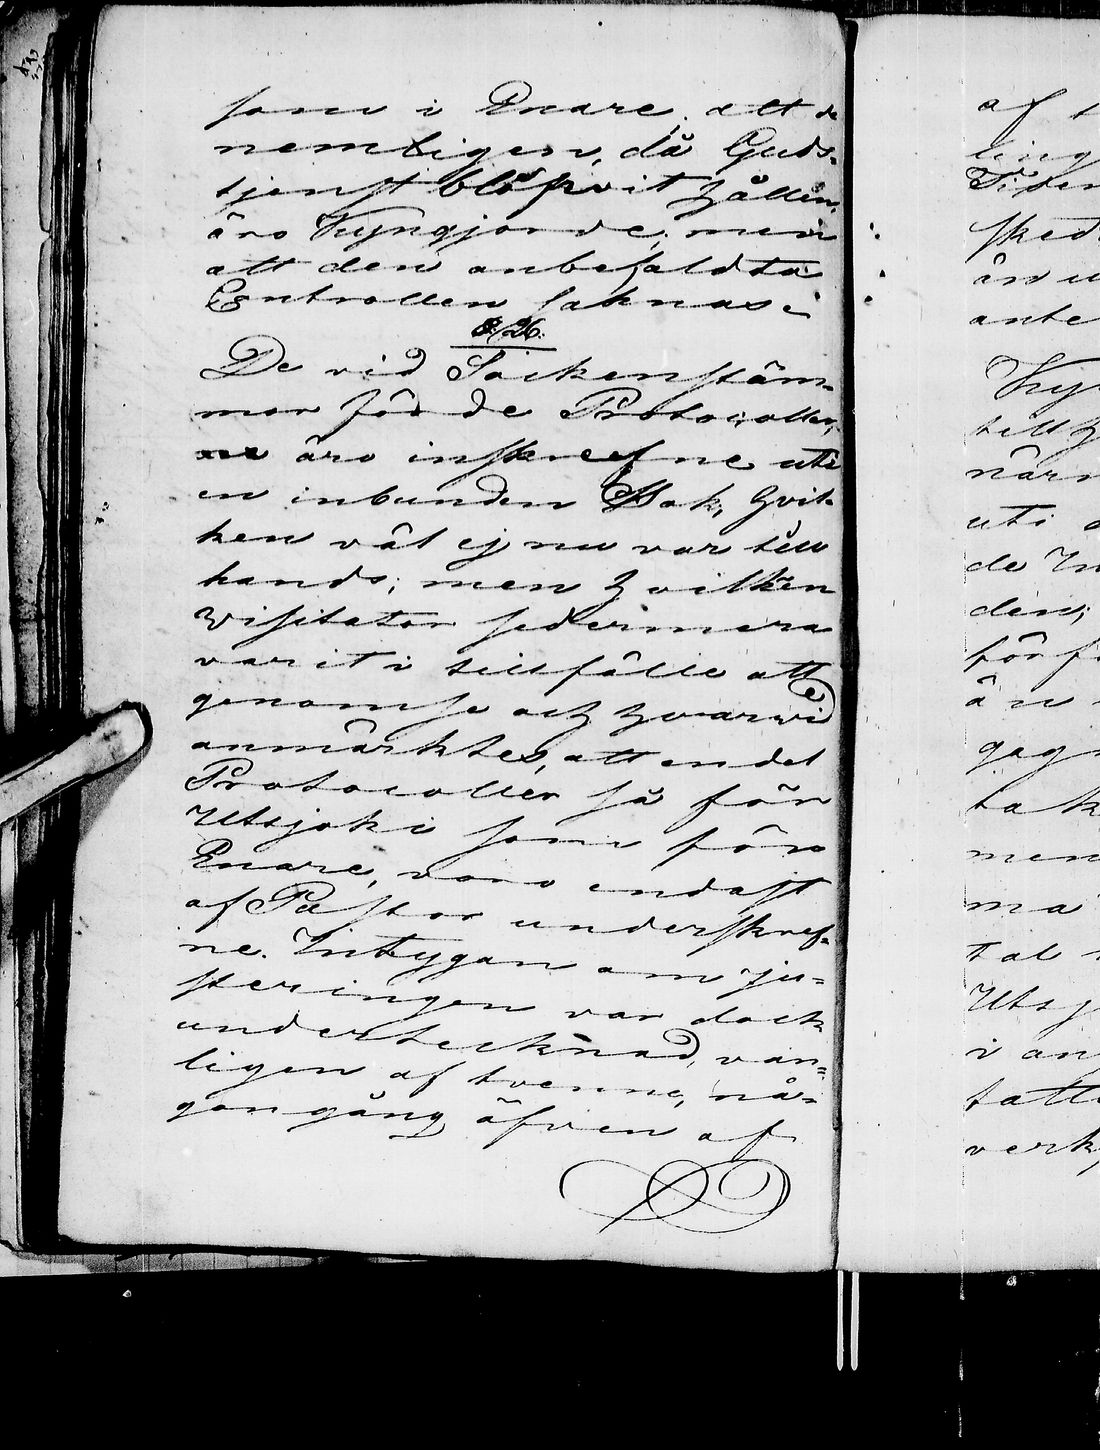 som i Enare, att de
nemligen, då Guds-
tjenst blifvit hållen,
äro kungjorde; men
att den anbefaldta
Controllen saknas.
§ 26.
De vid Sockenstäm-
mor förde Protocoller,
ne äro inskrefne uti
en inbunden Bok, hvil-
ken väl ej nu var till
hands; men hvilken
Visitator sedermera
varit i tillfälle att
genomse och hvarvid
anmärktes, att en del
Protocoller så för
Utsjoki som för
Enare, voro endast
af Pastor underskref-
ne. Intygan om ju-
steringen var dock
undertecknad, van-
ligen af tvenne, nå-
gon gång äfven af
af
ling
sked
än u
ante
till
närm
uti
de In
den;
för
än
gag
tak
men
ma
tal
Utsj
i an
fatt
verk,